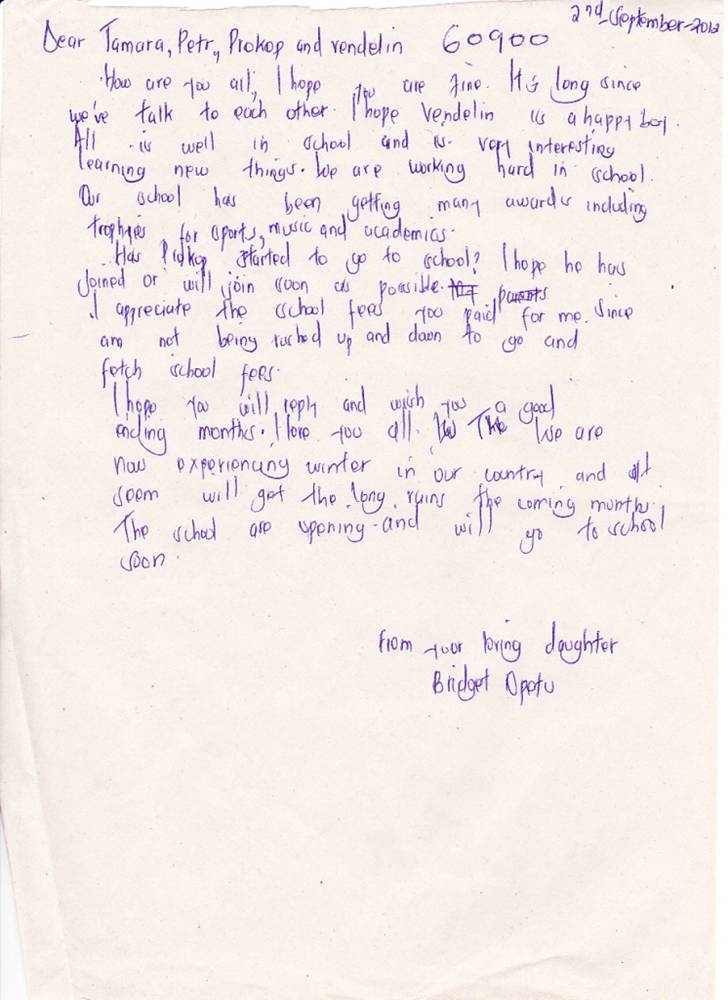 2nd September-2012
Dear Tamara, Petr, Prokop and Vendelin 60900
How are you all, I hope you are fine. It's long since
we've talk to each other. I hope Vendelin is a happy boy.
All is well in school and is very interesting
learning new things. We are working hard in school.
Our school has been getting many awards including
trophies for sports, music and academics.
Has Prokop started to go to school? I hope he has
joined or will join soon as possible. parents
I appreciate the school fees you paid for me. Since
am not being rushed up and down to go and
fetch school fees.
I hope you will reply and wish you a good
ending months. I love you all. The We are
now experiencing winter in our country and it
seem will get the long rains the coming month.
The school are opening and will go to school
soon.
From your loving daughter
Bridget Opotu